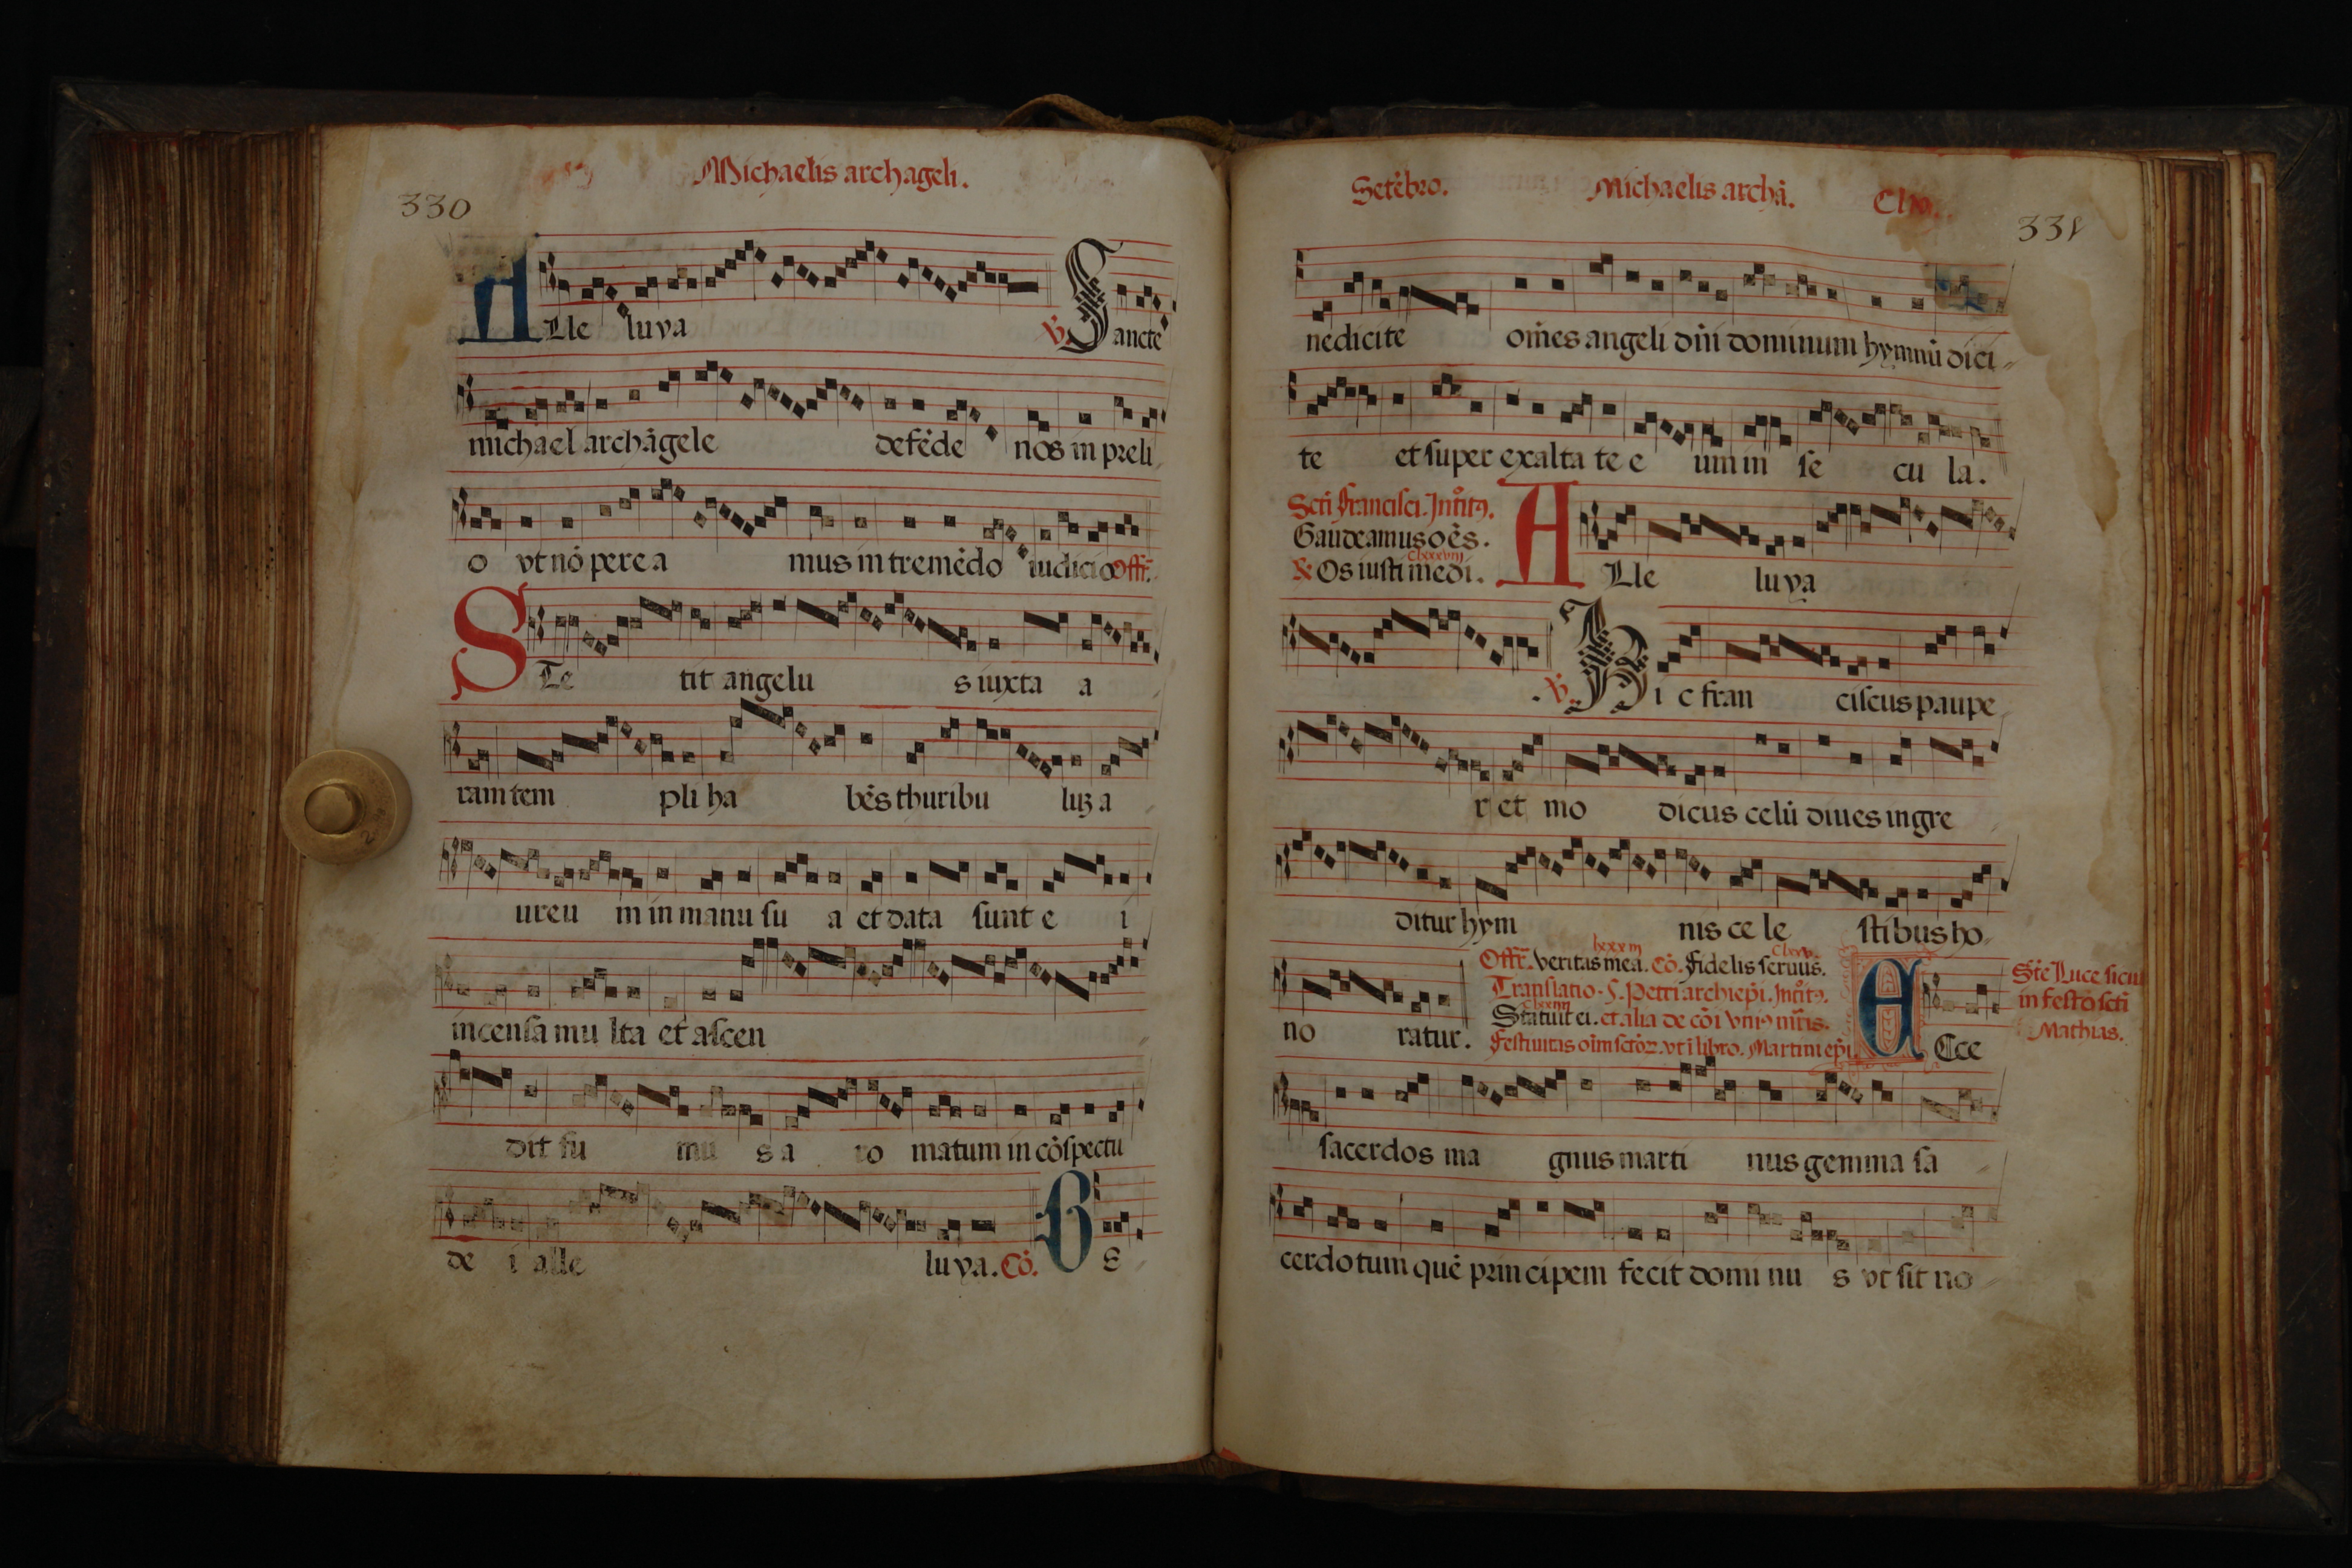 Michaelis archāgeli.
330
ALle luya ℣. Sancte
michael archāgele defēde nos in preli
o vt nō pere a mus in tremēdo iudicio Offr̄.
STe tit angelu s iuxta a
ram tem pli ha bēs thuribu luȝ a
ureu m in manu su a et data sunt e i
incensa mu lta et ascen
dit fu mu s a ro matum in cōspectu
de i alle luya. Cō. B e
Setēbro. Michaelis archā.
331
nedicite om̄es angeli dn̄i dominum hymnū dici
te et super exalta te e um in se cu la.
Scti Francisci. Introitꝰ.
Gaudeamus oēs.
Os iusti medi.
ALle luya
℣. Hi c fran ciscus paupe
r et mo dicus celū diues ingre
ditur hym nis ce le stibus ho
no ratur.
Offr̄. Veritas mea. Cō. Fidelis seruus.
Translatio. S. Petri archiepī. Introitꝰ.
Statuit ei. et alia de cōi vniꝰ mr̄is.
Festiuitas oīm sctōꝝ. vt ī libro. Martini epī.
ECce
Stē Luce sicut
in festo scti
Mathias.
sacerdos ma gnus marti nus gemma sa
cerdotum quē principem fecit domi nu s vt sit no